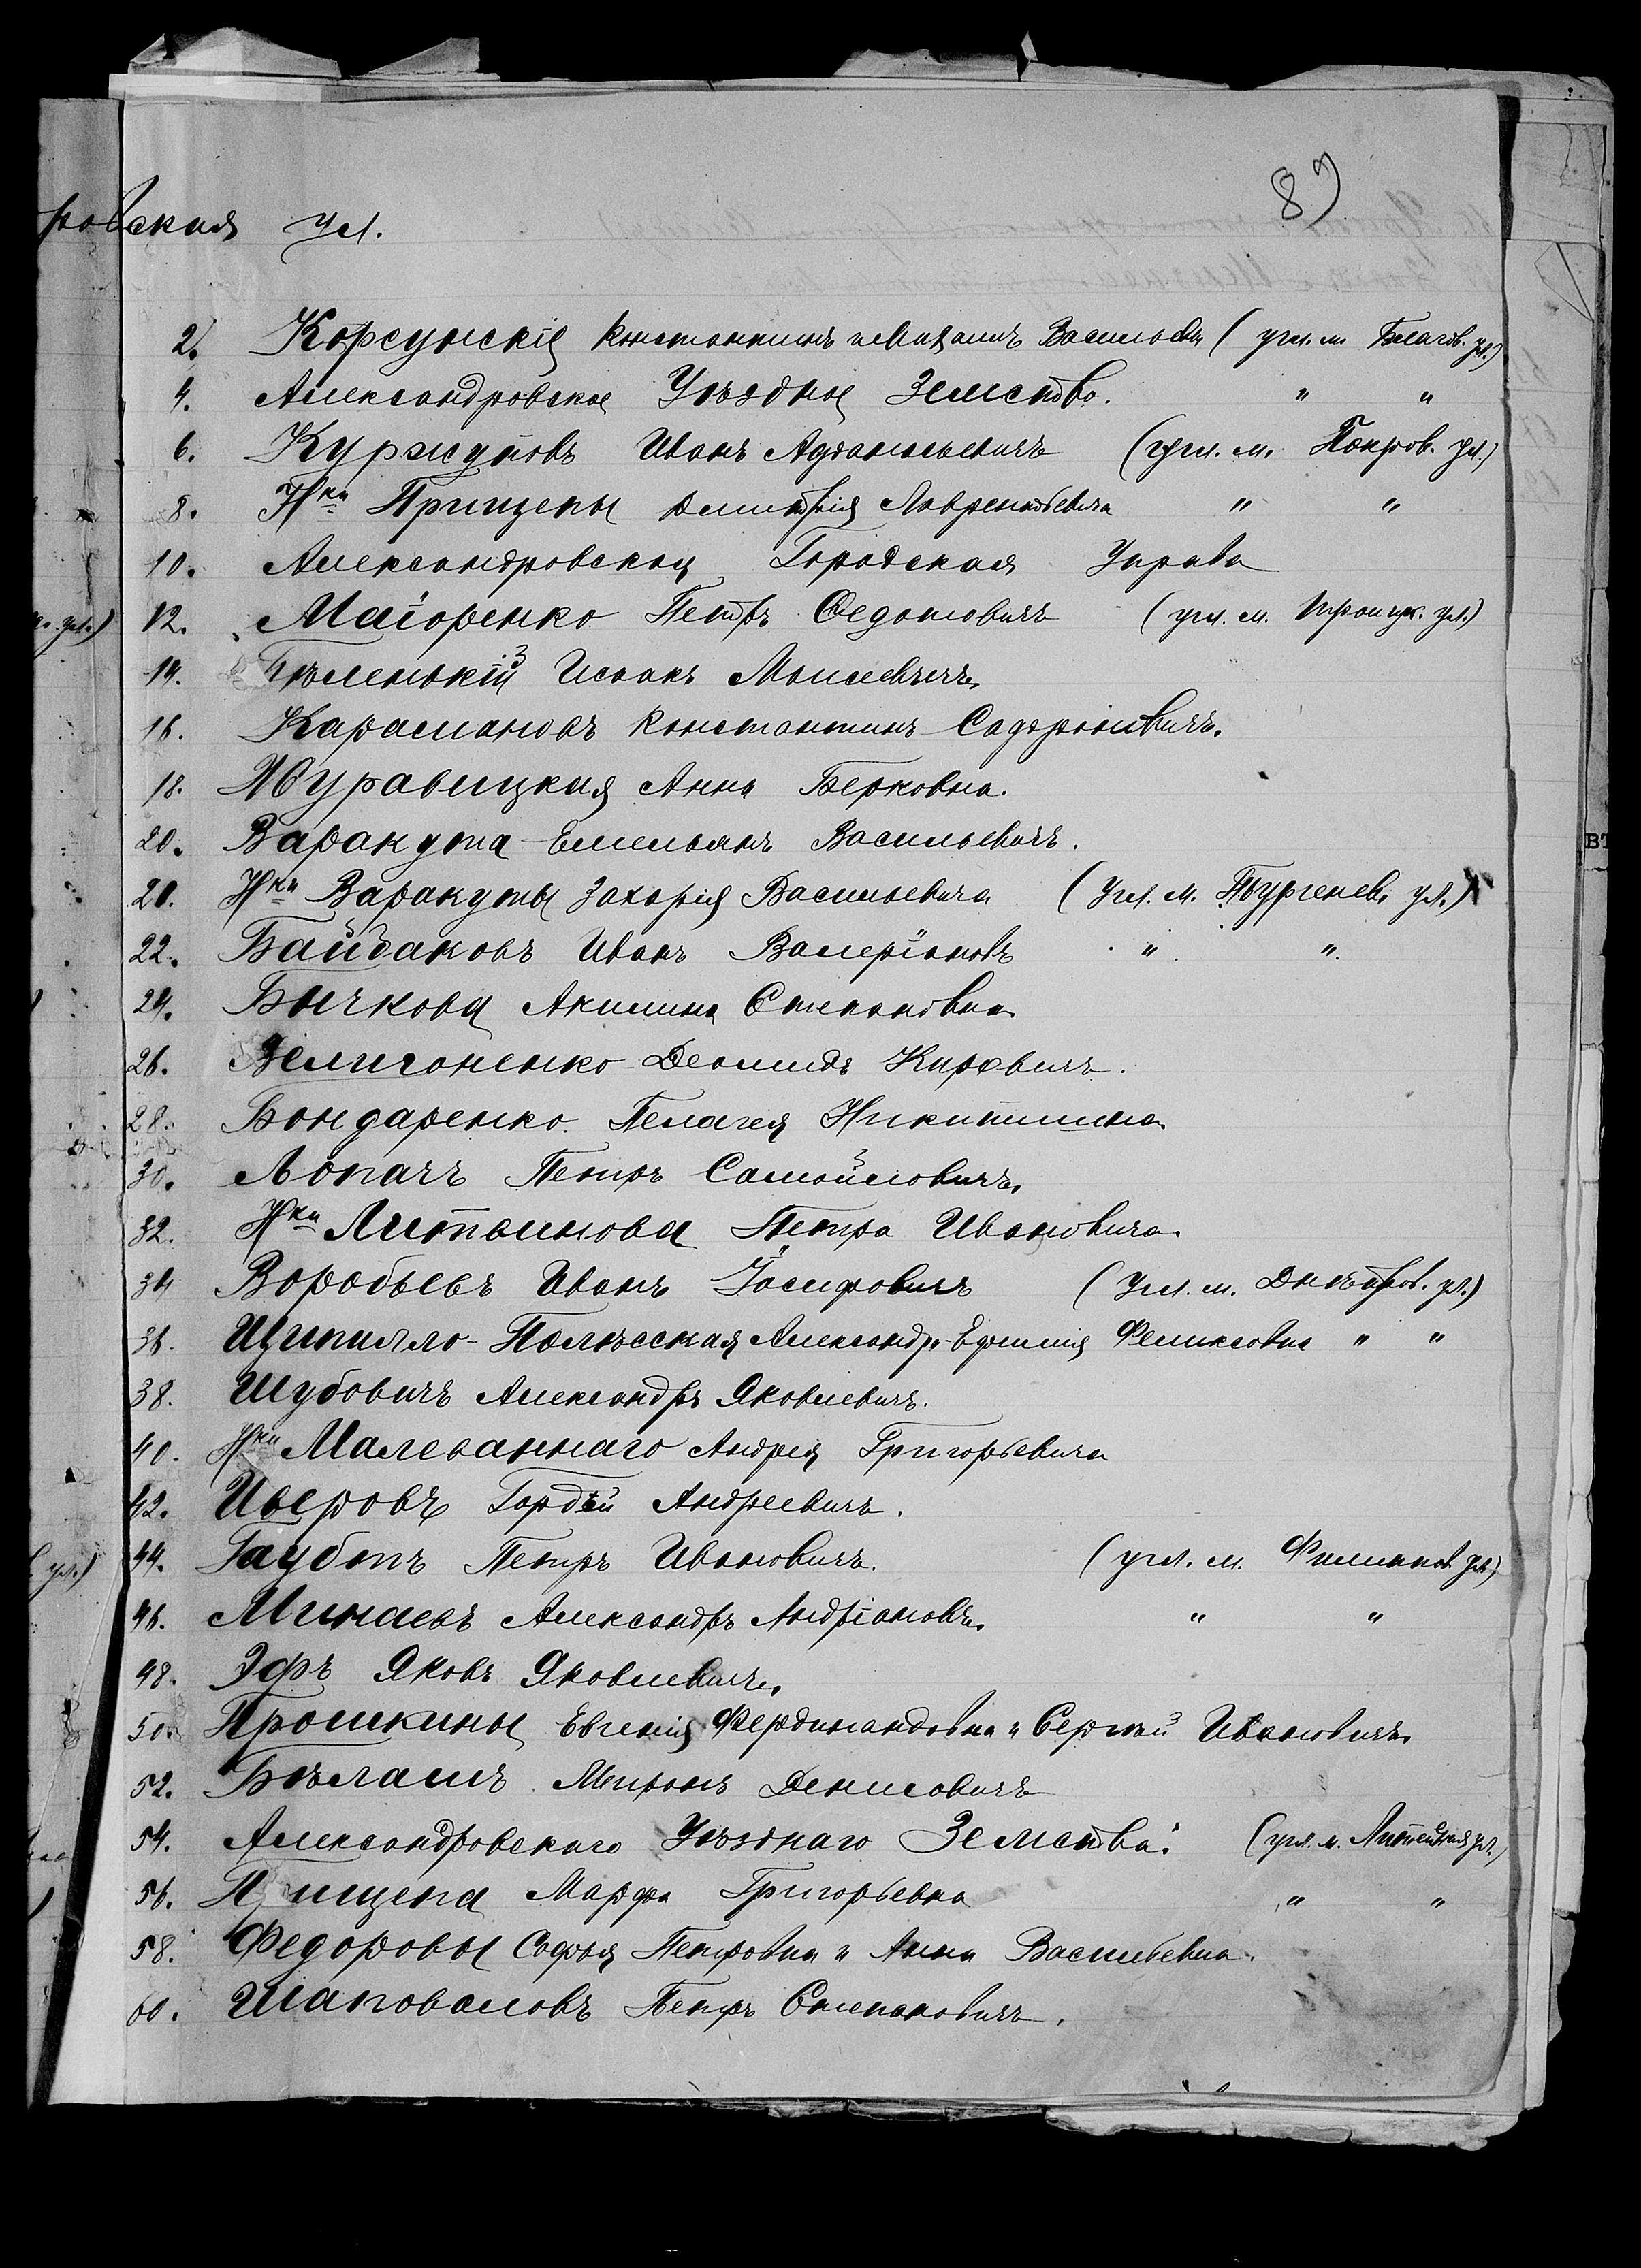 89
ровская ул.
2. Корсунскія Константинъ и Михаилъ Васильевы ( угл. м. Благов. ул.)
4. Александровское Уѣздное Земство. " "
6. Куржуповъ Иванъ Афанасьевичъ (угл. м. Покров. ул.)
8. Нки Прищепы Дмитрія Лаврентьевича " "
10. Александровская Городская Управа
12. Маіоренко Петръ Федотовичъ (угл. м. Троицк. ул.)
14. Бѣленькій Исаакъ Моисеевичъ
16. Карасмановъ Константинъ
18. Журавицкая Анна Берковна.
20. Варакута Емельянъ Васильевичъ.
20. Нки Варакуты Захарія Васильевича (Угл. м. Тургенев. ул.)
22. Байдаковъ Иванъ Валеріановъ " "
24. Бычкова Акилина Степановна
26. Велигоненко Деомидъ Кировичъ.
28. Бондаренко Пелагея Никитишна
30. Лопачъ Петръ Самойловичъ.
32. Нки Литвинова Петра Ивановича.
34 Воробьевъ Иванъ Іосифовичъ (Угл. м. Днѣпров. ул.)
36. Щипилло-Полѣсская Александр.-Ефимія Феликсовна " "
38. Шубовичъ Александръ Яковлевичъ.
40. Нки Малеваннаго Андрея Григорьевича
42. Иверовъ Гордѣй Андреевичъ.
44. Гаубтъ Петръ Ивановичъ. (угл. м. Филипов. ул.)
46. Минаевъ Александръ Андріановъ. " "
48. Эфъ Яковъ Яковлевичъ.
50. Прошкины Евгенія Фердинандовна и Сергѣй Ивановичъ.
52. Бѣлашъ Миронъ Денисовичъ
54. Александровскаго Уѣзднаго Земства. (угл. м. Литейная ул.)
56. Прищепа Марфа Григорьевна " "
58. Федоровы Софья Петровна и Анна Васильевна.
60. Шаповаловъ Петръ Степановичъ.